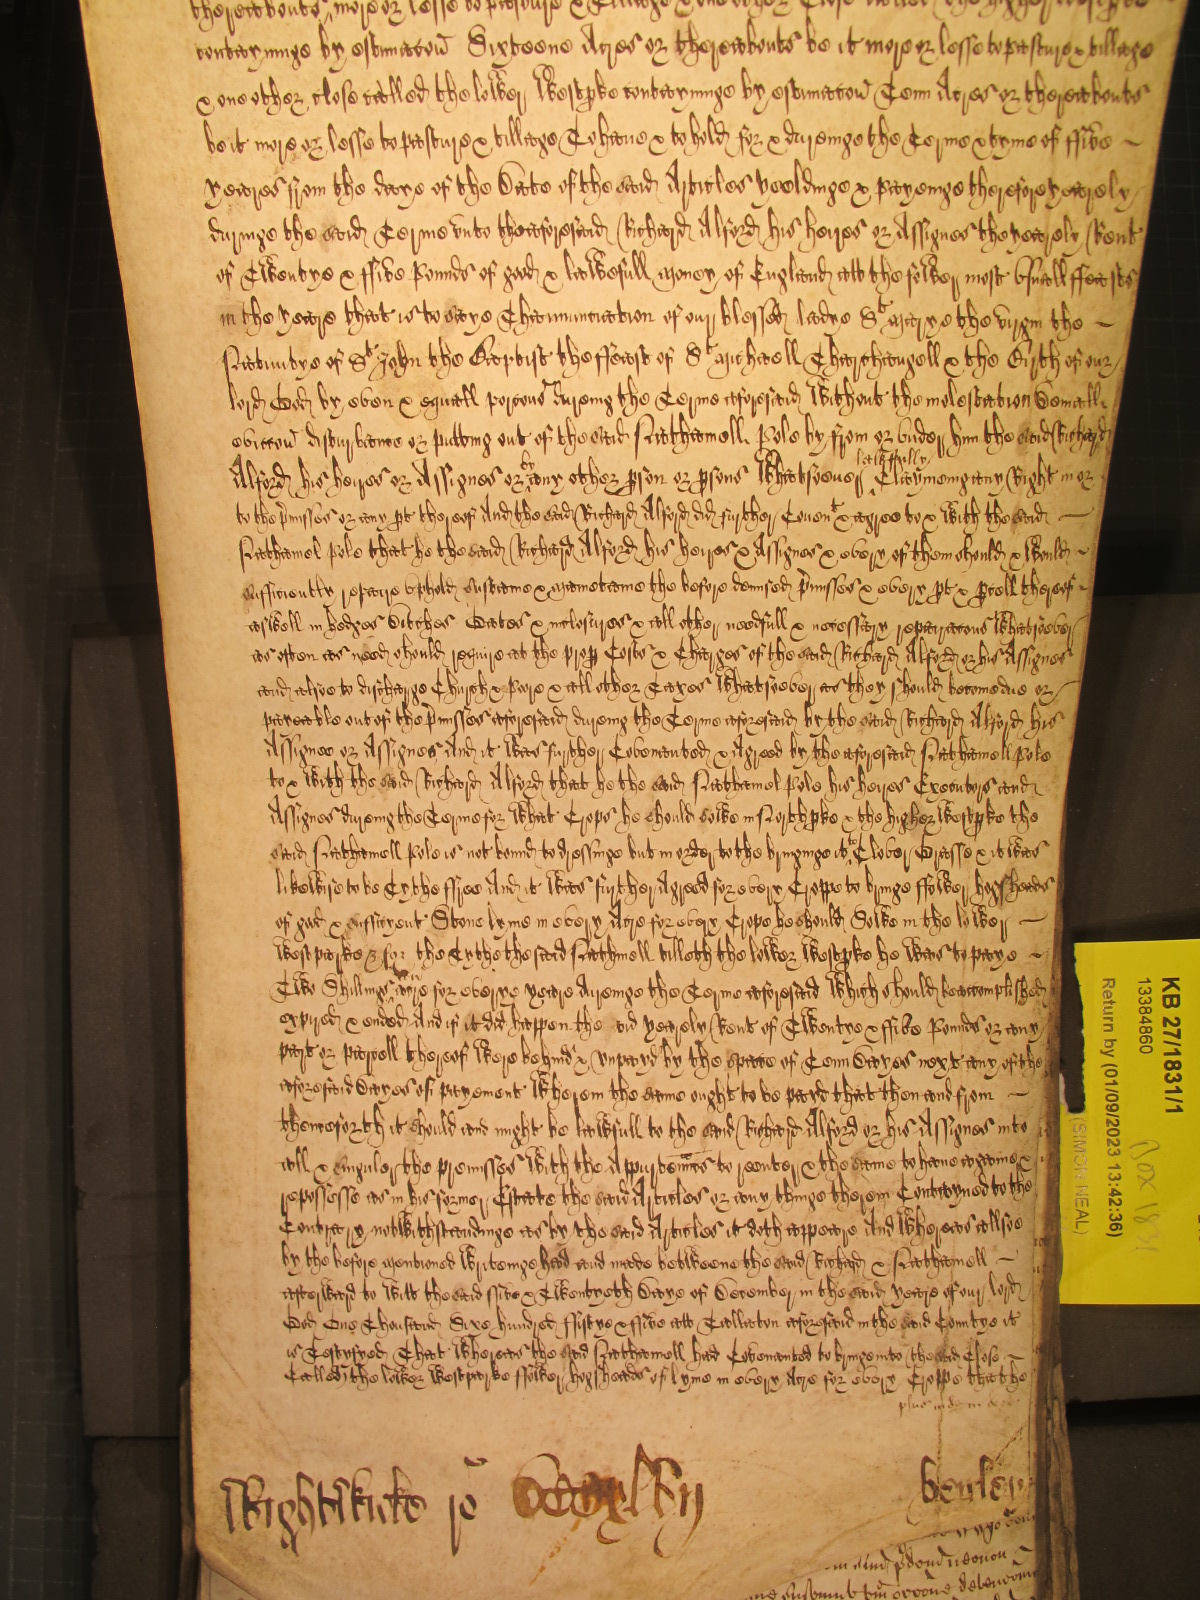 thereabouts more or lesse to pasture & tillage & one other Close called the higher Westpke
contayninge by estimacon Sixteene Acres or thereabouts be it more or lesse to pasture & tillage
& one other close called the lower Westpke contayninge by estimacon Tenn Acres or thereabouts
be it more or lesse to pasture & tillage To haue & to hold for & dureinge the Terme & tyme of ffive
yeares from the daye of the Date of the said Articles yeeldinge & payeinge therefore yearely
duringe the said Terme vnto the aforesaid Richard Alford his heires or Assignes the yearely Rent
of Twentye & ffive Pounds of good & lawefull money of England att the fower most vsuall ffeasts
in the yeare that is to saye Thannunciation of our blessed ladye St Marye the virgin the
Nativitye of St John the Baptist the ffeast of St Michaell Tharchangell & the Birth of our
lord God by even & equall porcons dureing the Terme aforesaid Without the molestation Deniall
eviccon disturbance or putting out of the said Nathaniell Pole by from or vnder him the said Richard
Alford his heires or Assignes or by any other pson or psons Whatsoever lawfully Claymeing any Right in or
to the pmisses or any pt thereof And the said Richard Alford did further Covent & agree to & with the said
Nathaniel Pole that he the said Richard Alford his heires & Assignes & every of them should & Would
sufficiently repaire vphold sustaine & maineteaine the before demised pmisses & every pt & pcell thereof
aswell in hedges Ditches Gates & inclosures & all other needfull & necessary reparacons Whatsoever
as often as need should require at the prop Costs & Charges of the said Richard Alford or his Assignes
and alsoe to discharge Church & Poore & all other Taxes Whatsoever as they should become due or
payeable out of the pmisses aforesaid dureing the Terme aforesaid by the said Richard Alford his
Assignee or Assignes And it Was further Covenanted & Agreed by the aforesaid Nathaniell Pole
to & With the said Richard Alford that he the said Nathaniel Pole his heires Executors and
Assignes dureing the Terme for What Crops he should sowe in Northpke & the higher Westpke the
said Nathaniell Pole is not bound to dressinge but in order to the bringinge it to Clover Grasse & it Was
likewise to be Tythe ffree And it Was further Agreed for every Croppe to bringe ffower hogsheads
of good & sufficyent Stone lyme in every Acre for every Crope he should Sowe in the lower
Westparke & for the Tythe the said Nathaniell tilleth the lower Westpke he Was to paye
Two Shillings acre for everye yeare dureinge the Terme aforesaid Which should be accomplished
expired & ended And if it did happen the said yearely Rent of Twentye & ffive Pounds or any
part or parcell thereof Were behind & vnpayd by the space of Tenn Dayes next any of the
aforesaid Dayes of payement Wherein the same ought to be payd that then and from
thenceforth it should and might be lawfull to the said Richard Alford or his Assignes into
all & singuler the premisses With the Appurtenncs to reenter & the same to haue againe &
repossesse as in his former Estate the said Articles or any thinge therein Contayned to the
Contrary notWithstandinge as by the said Articles it doth appeare And Whereas allsoe
by the before mentioned Writeinge had and made betweene the said Richard & Nathaniell
afterward to Witt the said ffive & Twentyeth Daye of December in the said yeare of our lord
God One Thousand Sixe hundred ffiftye & ffive att Tallaton aforesaid in the said Countye it
is Testifyed That Whereas the said Nathaniell had Covenanted to bringe into the said Close
Called the lower Westparke ffower hogsheads of lyme in every Acre for every Croppe that he
plus inde in
Wightwicke ro
KB 27/1831/1
13384860
Return by (01/09/2023 13:42:36)
(SIMON NEAL)
Box 1831